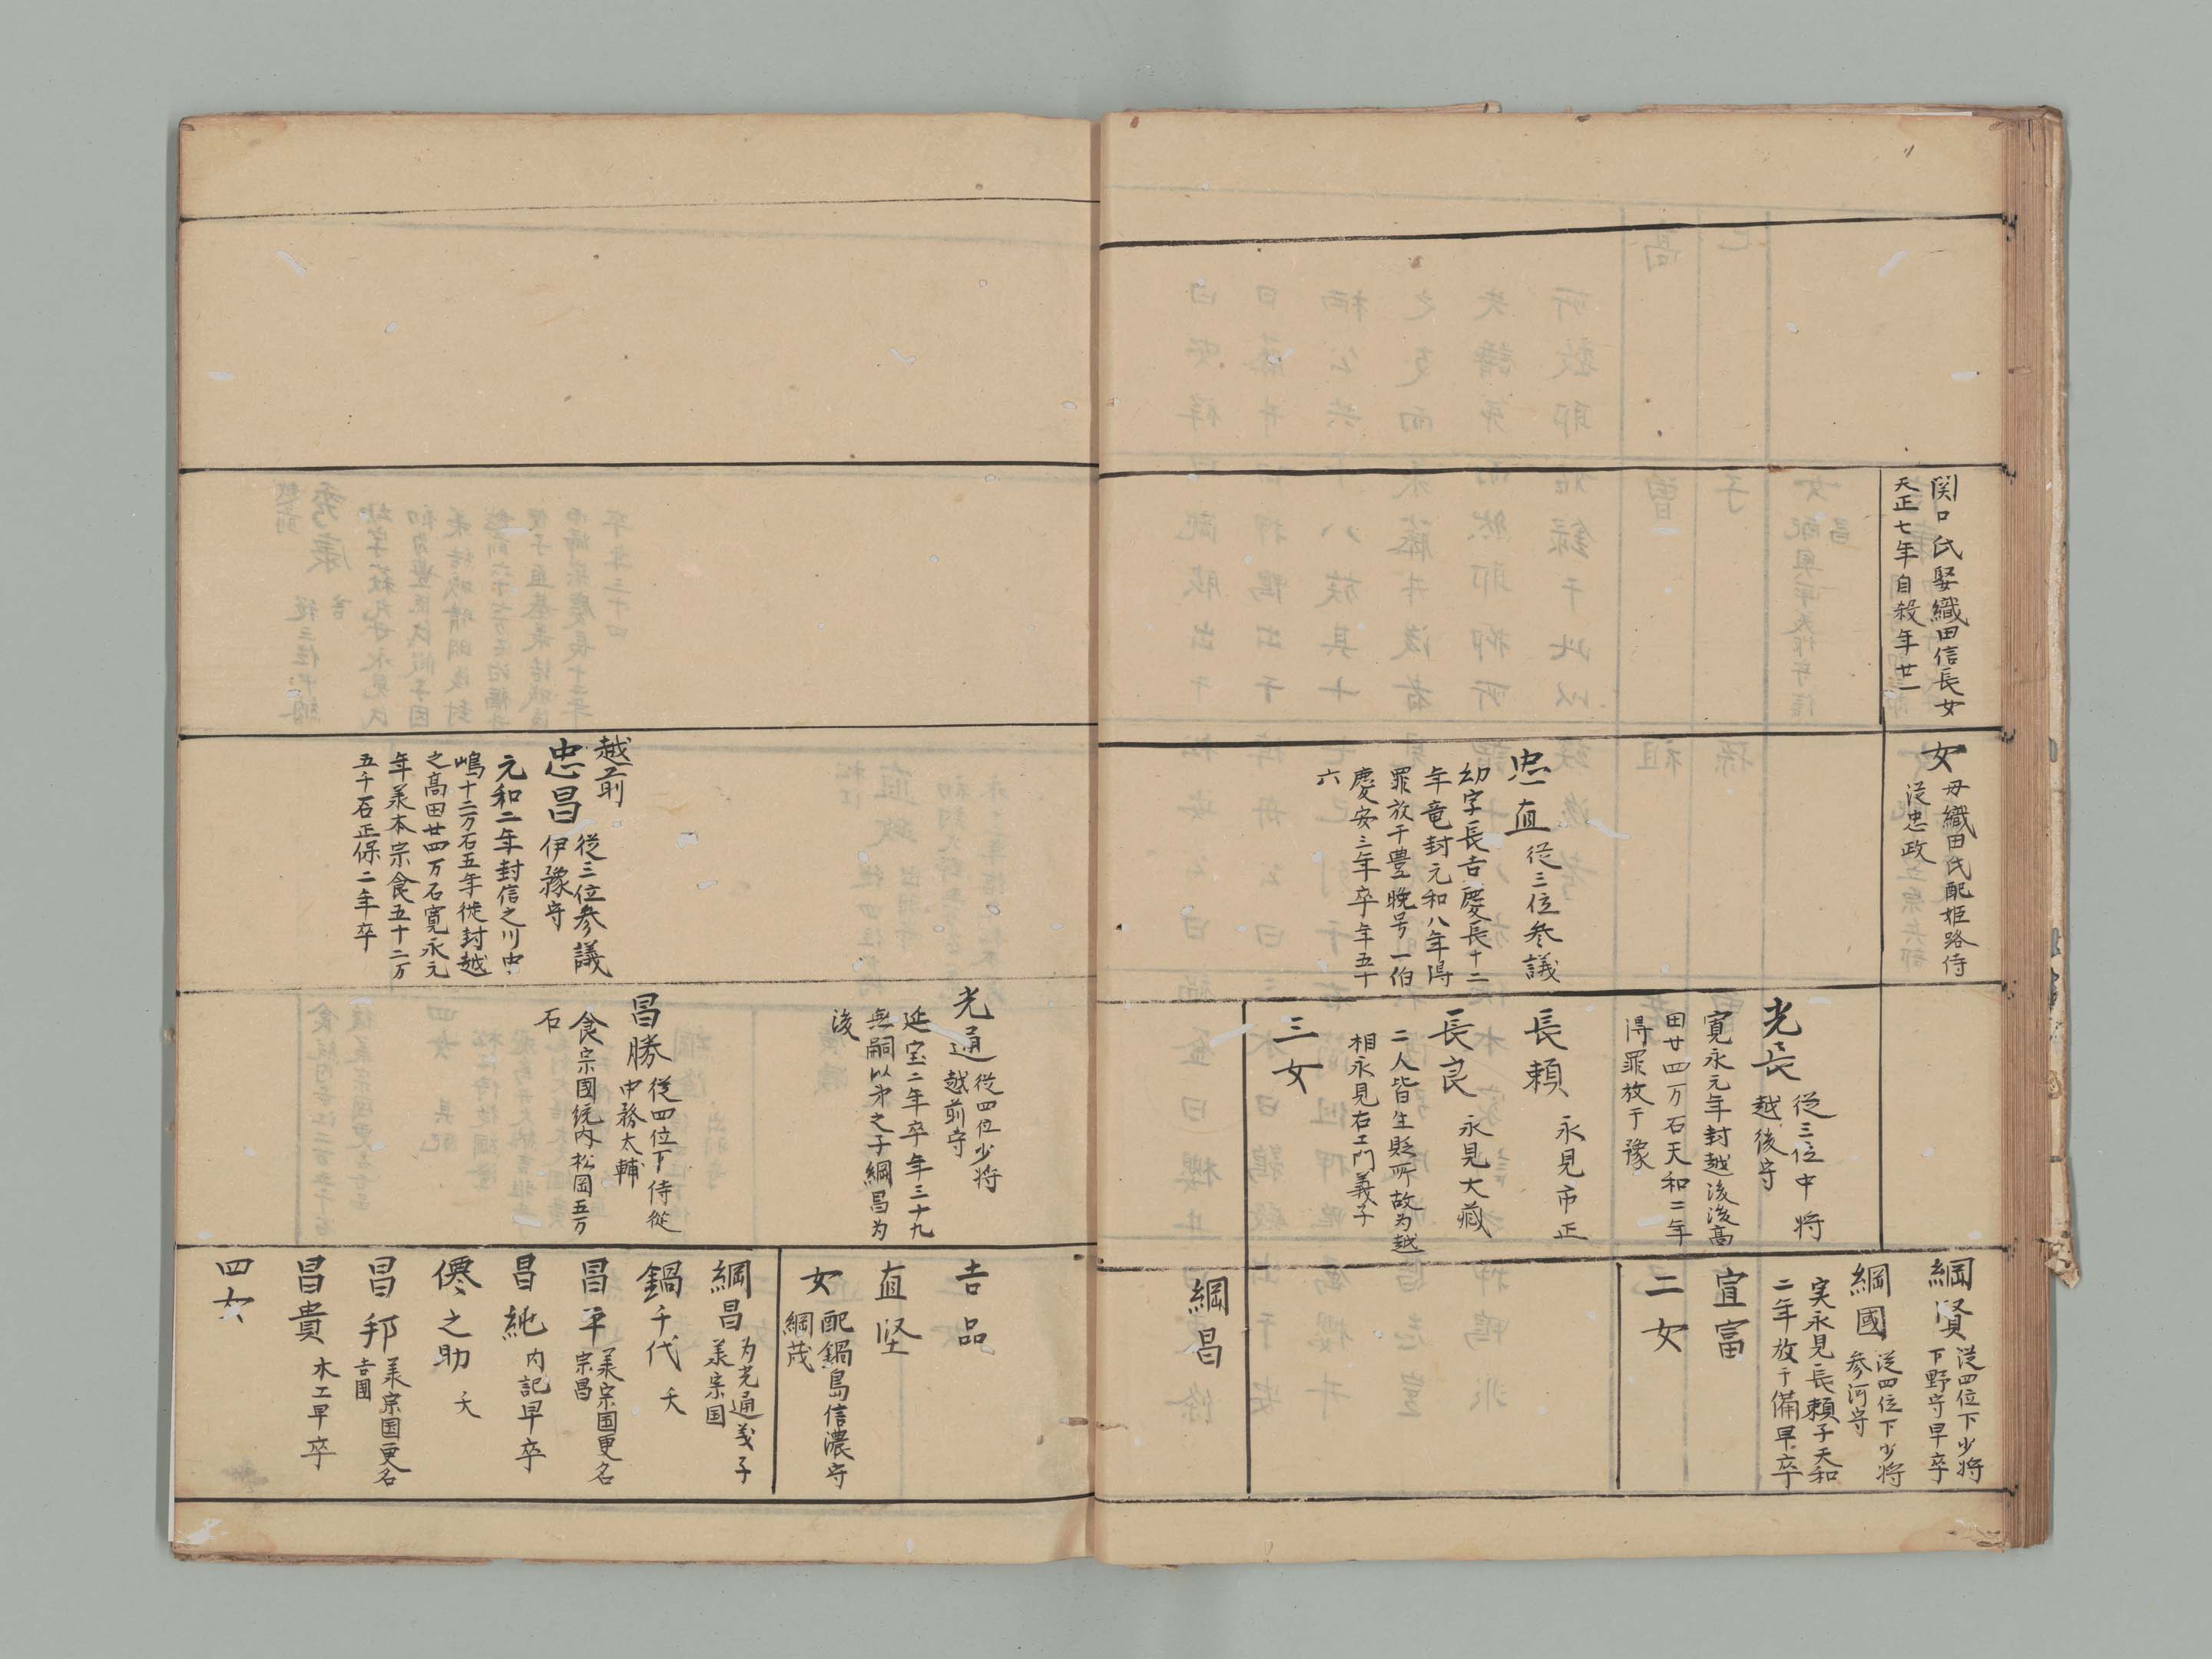 関口氏娶織田信長女
天正七年自殺年廿一
女
母織田氏配姫路侍
従忠政
忠直
従三位参議
幼字長吉慶長十二
年竜封元和八年得
罪放于豊晩号一伯
慶安三年卒年五十
六
光長
従三位中将
越後守
寛永元年封越後後高
田廿四万石天和二年
得罪放于豫
長頼
永見市正
長良
永見大蔵
二人皆生貶所故为越
相永見右エ門義子
三女
綱賢
従四位下少将
下野守早卒
綱國
従四位下少将
参河守
実永見長頼子天和
二年放于備早卒
宣富
二女
綱昌
越前
忠昌
従三位参議
伊豫守
元和二年封信之川中
嶋十二万石五年徙封越
之高田廿四万石寛永元
年羕本宗食五十二万
五千石正保二年卒
光通
従四位少将
越前守
延宝二年卒年三十九
無嗣以弟之子綱昌为
後
昌勝
従四位下侍従
中務太輔
食宗國統内松岡五万
石
吉品
直堅
女
配鍋島信濃守
綱茂
綱昌
为光通義子
羕宗国
鍋千代
夭
昌平
羕宗国更名
宗昌
昌純
内記早卒
僊之助
夭
昌邦
羕宗国更名
吉圕
昌貴
木工早卒
四女